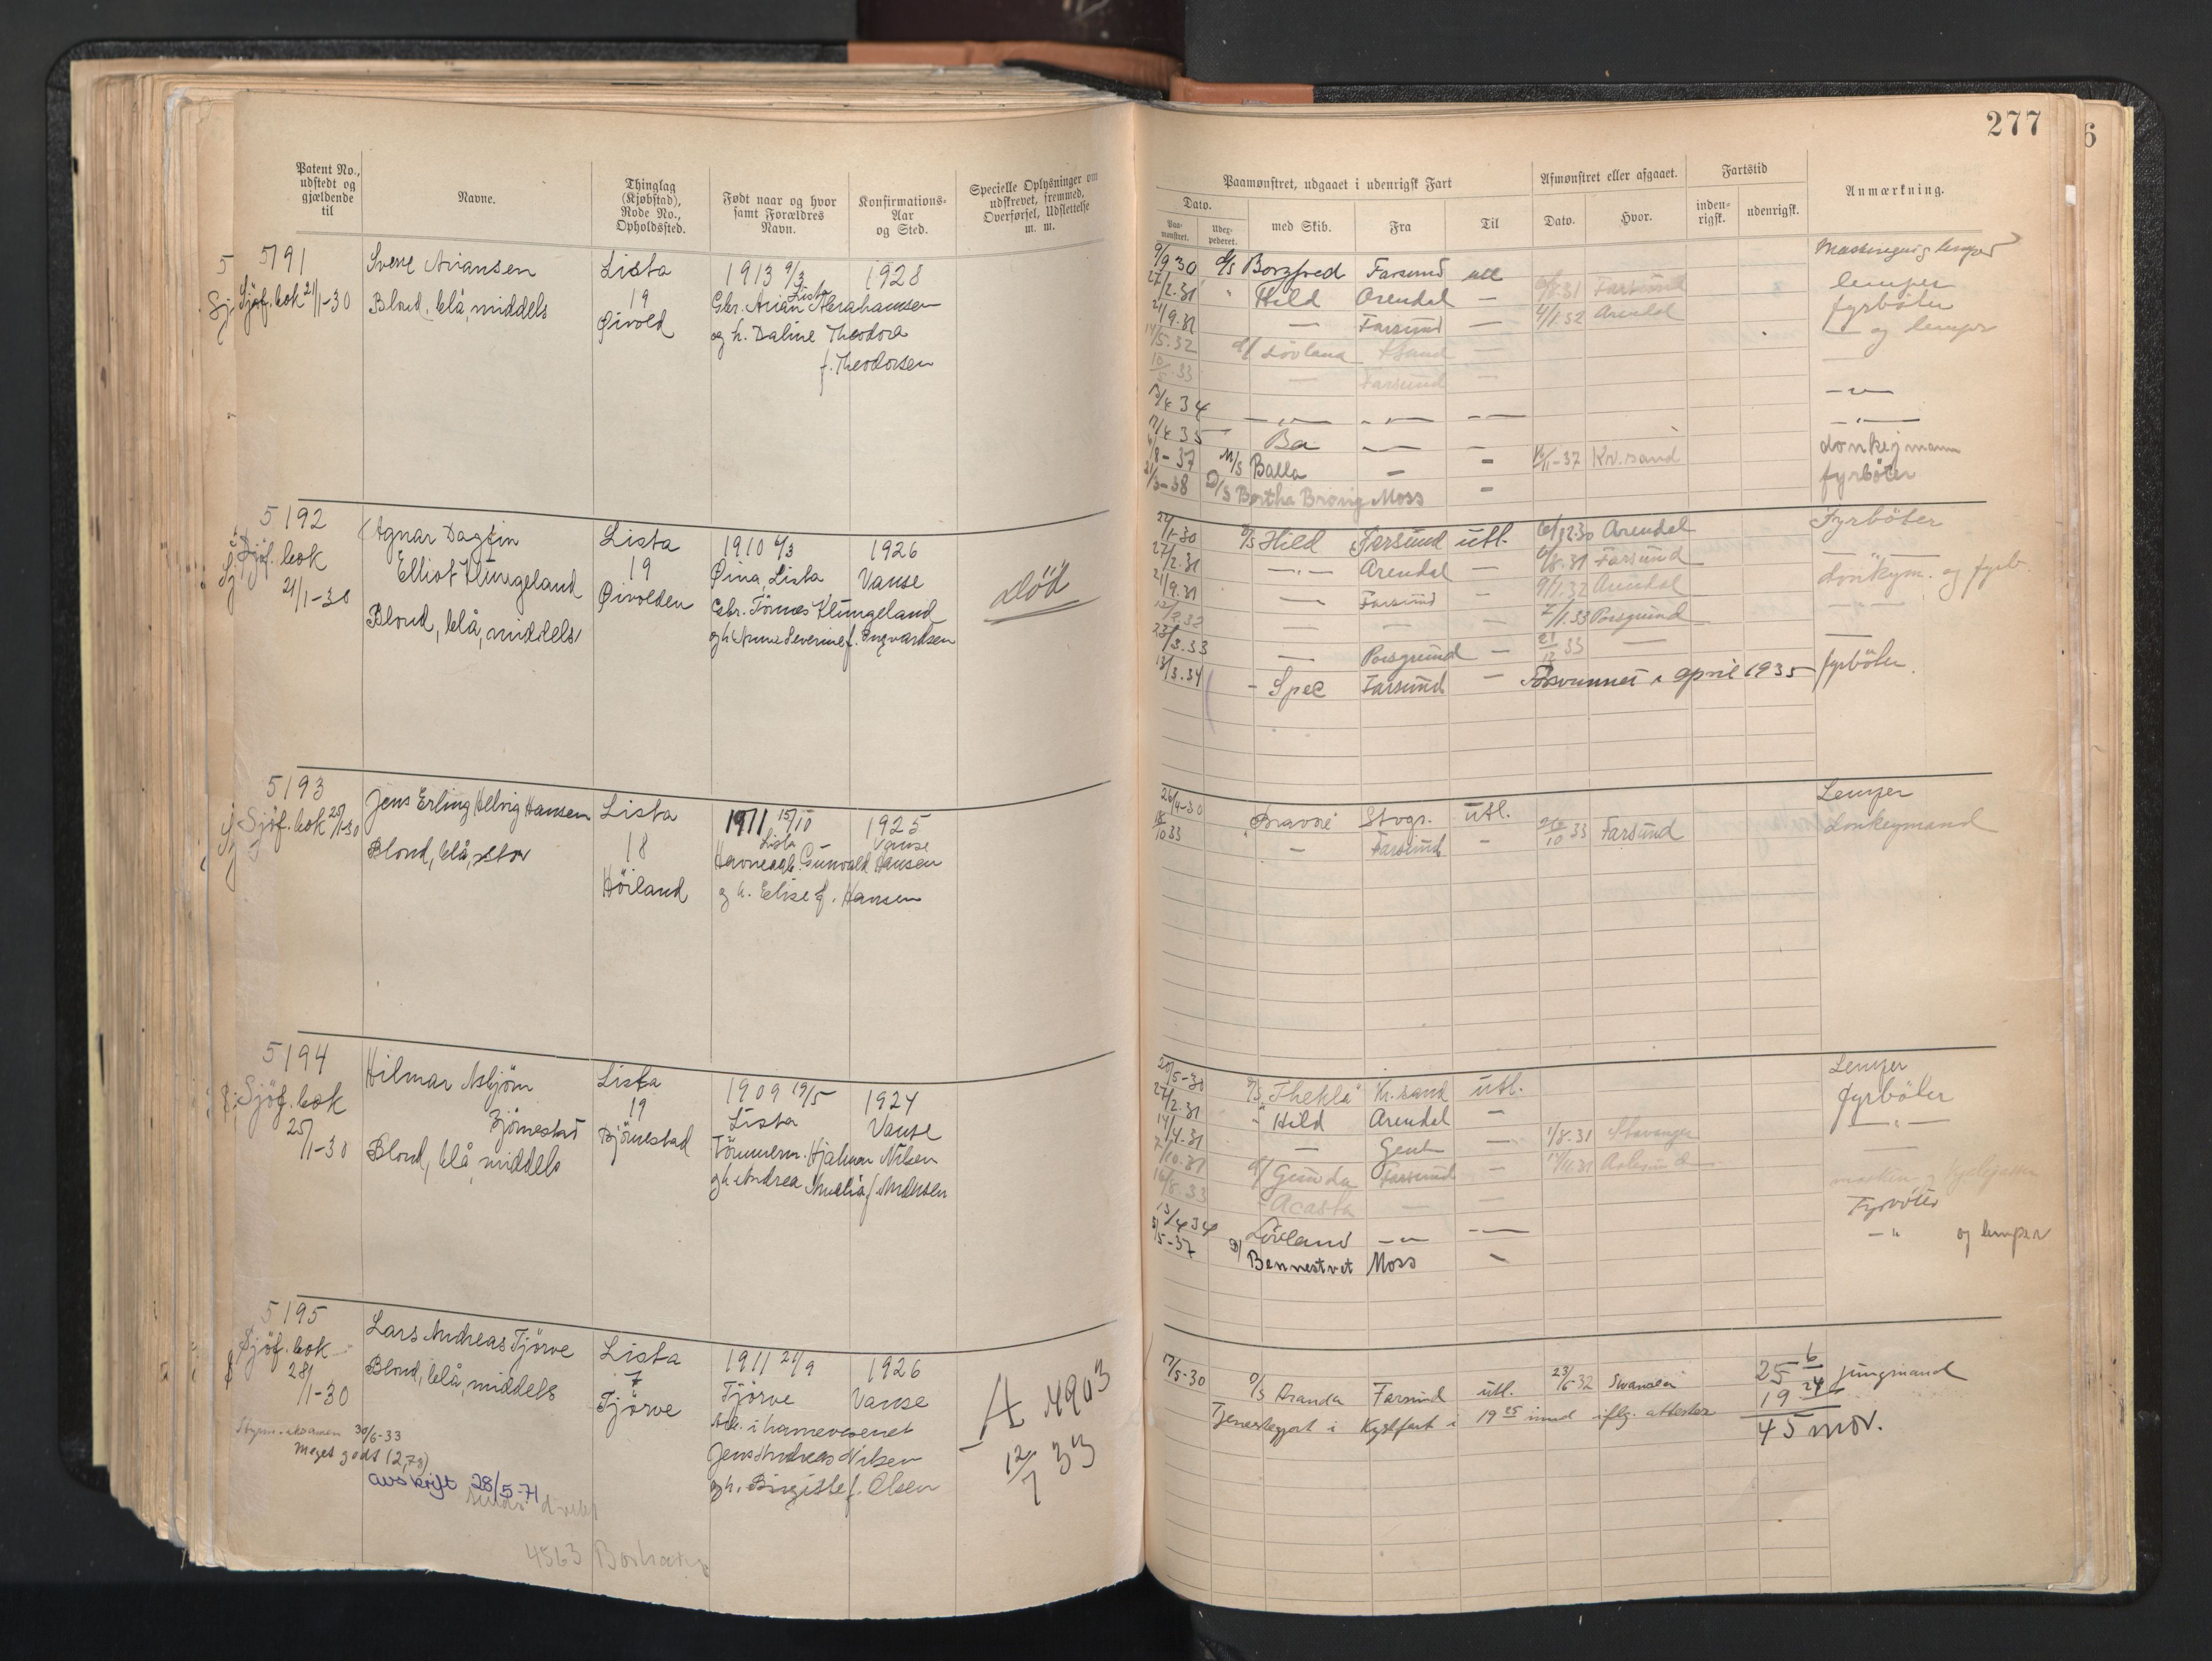 277
6
Patent No., udstedt og gjældende til
Navne.
Thinglag (Kjøbstad), Rode No., Opholdssted.
Født naar og hvor samt Forældres Navn.
Konfirmations-Aar og Sted.
Specielle Oplysninger om udskrevet, fremmed, Overførsel, Udslettelse m. m.
Paamønstret, udgaaet i udenrigsk Fart
Afmønstret eller afgaaet.
Fartstid
Anmærkning.
Dato.
Paa-mønstret.
Udex-pederet.
med Skib.
Fra
Til
Dato.
Hvor.
inden-rigsk.
udenrigsk.
5191
Sjøf. bok 21/1-30
Sverre Ariansen
Blond, blå, middels
Lista
19
Øivold
1913 9/3
Lista
Gbr. Arian Abrahamsen
og h. Daline Theodora
f. Theodorsen
1928
9/9 30 Borgfred Farsund utl
27/2.31 " Hild Arendal — Farsund lemper
21/9.31 — Farsund — 4/1.32 Arendal fyrbøter
14/5.32 Lövland — og lemper
10/5.33 — Farsund —
13/4 34
17/4 35
8-37 M/S Balla - - 37 Kr.sand donkeymann
21/3-38 D/S Bertha Brøvig Moss - fyrbøter
5192
Sjøf. bok
21/1-30
Agnar Dagfin
Elliot Klungeland
Blond, blå, middels
Lista
19
Øivolden
1910 4/3
Lista
Gbr. Tönnes Klungeland
og h. Anne Severine f. Ingvartsen
1926
Vanse
död
22/1-30 D/S Hild Farsund utl. 6/12.30 Arendal Fyrböter
27/2.31 —"— Arendal — 6/8.31 Farsund —"—
21/9.31 — Farsund — 9/1.32 Arendal donkeym. og fyrb.
— — — 7/1.33 Porsgrund —"—
23/3.33 — Porsgrund — 21/12 33 —
13/3.34 - Spec Farsund — Forsvunnet i april 1935 fyrböter
5193
Sjøf. bok 25/1-30
Jens Erling Helvig Hansen
Blond, blå, stor
Lista
18
Höiland
1911 15/10
Lista
Havnearb. Gunvald Hansen
og h. Elise f. Hansen
1925
Vanse
26/4-30 Bravore Stvgr. utl. Lemper
18/10 33 — Farsund - 10 33 Farsund Donkeymand
5194
Sjøf. bok
25/1-30
Hilmar Asbjörn
Björnestad
Blond, blå, middels
Lista
19
Björnestad
1909 19/5
Lista
Tömmerm. Hjalmar Nilsen
og h. Andrea Amalia f. Andersen
1924
Vanse
20/5-30 D/S "Thekla" Kr.sand utl. Lemper
27/2.31 " Hild Arendal — fyrböter
14/4.31 — Gent — 1/8.31 Stavanger —"—
7/10.31 Gunda Farsund — Aalesund —
16/8.33 Acasta — —
13/4 34 Lövland —"— Fyrböter
5-37 D/ Bennestvet Moss — —"— og lemper
5195
Sjøf. bok
28/1-30
Lars Andreas Tjörve
Blond, blå, middels
Styrm. eksamen 30/6-33
Meget godt (2,78)
avskrift 28/5-71
Lista
7
Tjörve
1911 21/9
Tjörve
Arb. i havnevesenet
Jens Andreas Nilsen
og h. Birgitte f. Olsen
1926
Vanse
A 4903
12/7 33
4563 Borhaug
17/5-30 D/S Aranda Farsund utl. 23/6-32 Swansea 25 6 jungmand
Tjenestegjort i Kystfart i 19 25 mnd iflg. attester 19 24
45 mdr.